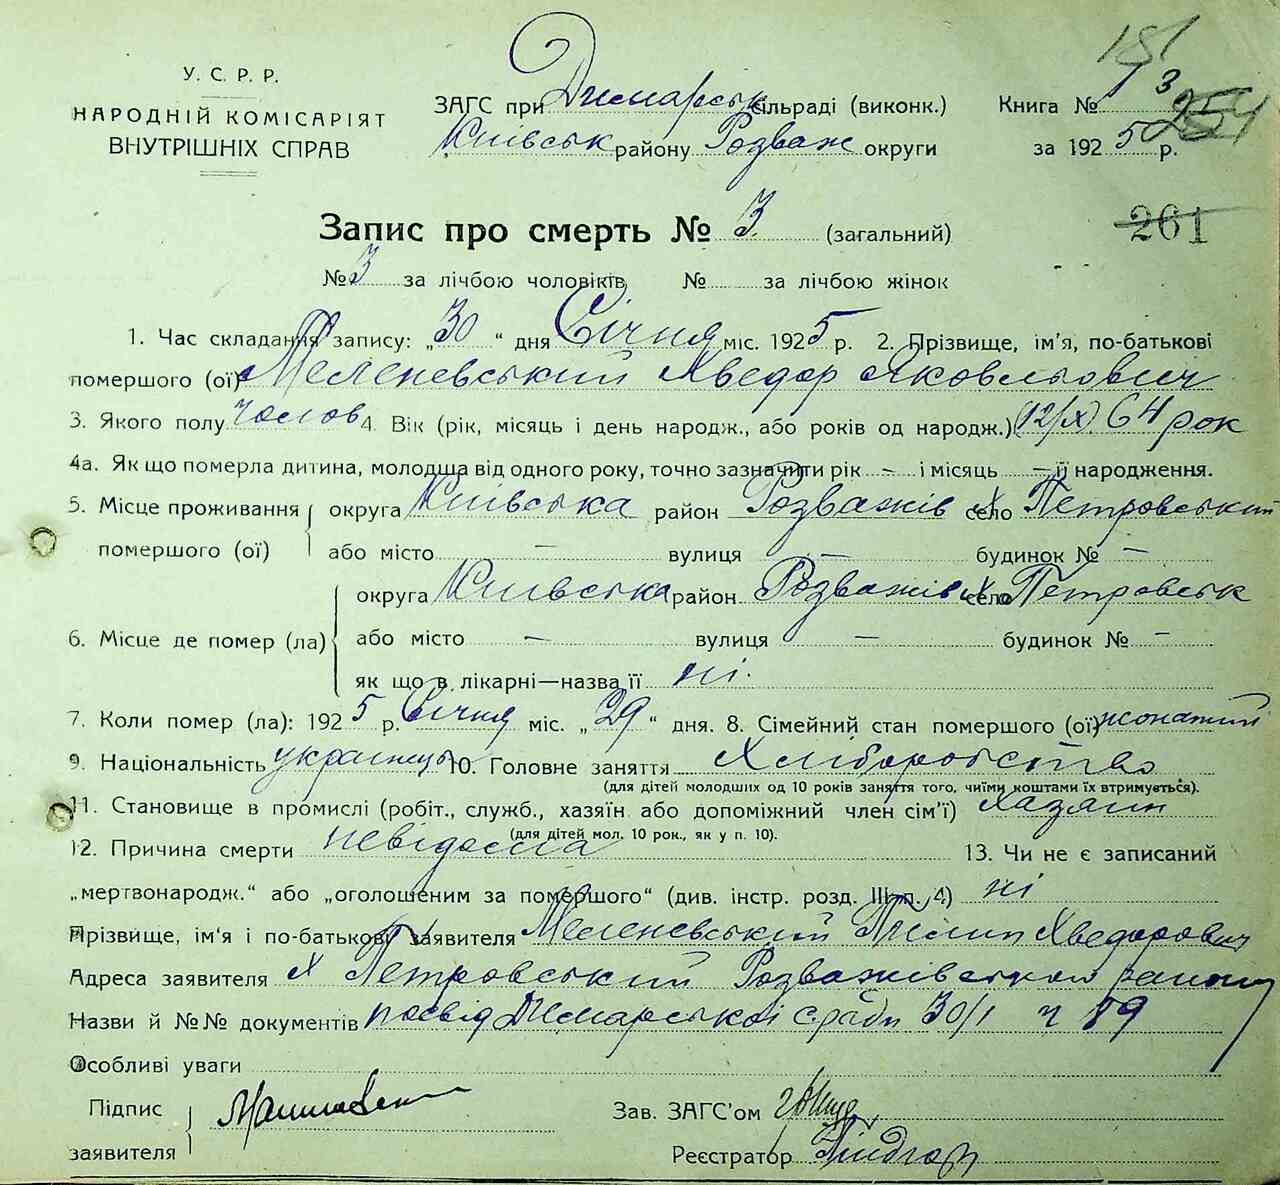 181
У. С. Р. Р.
НАРОДНІЙ КОМІСАРІЯТ
ВНУТРІШНІХ СПРАВ
ЗАГС при Димарськ сільраді (виконк.)
Київськ району Розваж округи
Книга № 1 3
254
за 1925 р.
261
Запис про смерть № 3. (загальний)
№ 3 за лічбою чоловіків № за лічбою жінок
1. Час складання запису: „30“ дня Січня міс. 1925 р. 2. Прізвище, ім'я, по-батькові
помершого (ої) Меленевський Хведор Яковльович
3. Якого полу чолов 4. Вік (рік, місяць і день народж., або років од народж.) (12/X) 64 рок
4а. Як що померла дитина, молодша від одного року, точно зазначити рік – і місяць – її народження.
5. Місце проживання помершого (ої) округа Київська район Розважів село х Петровський
або місто – вулиця – будинок № –
6. Місце де помер (ла) округа Київська район Розважів село х Петровськ
або місто – вулиця – будинок № –
як що в лікарні—назва її ні.
7. Коли помер (ла): 1925 р. Січня міс. „29“ дня. 8. Сімейний стан помершого (ої) жонатий
9. Національність українець 10. Головне заняття Хліборобство
(для дітей молодших од 10 років заняття того, чиїми коштами їх втримується).
11. Становище в промислі (робіт., служб., хазяїн або допоміжний член сім'ї) хазяин
(для дітей мол. 10 рок., як у п. 10).
12. Причина смерти невідома 13. Чи не є записаний
„мертвонародж.“ або „оголошеним за помершого“ (див. інстр. розд. III п. 4) ні
Прізвище, ім'я і по-батькові заявителя Меленевський Пилип Хведорович
Адреса заявителя х Петровський Розважівського району
Назви й №№ документів посвід Димарської с/ради 30/1 ч 89
Особливі уваги
Підпис заявителя
Зав. ЗАГС'ом
Реєстратор